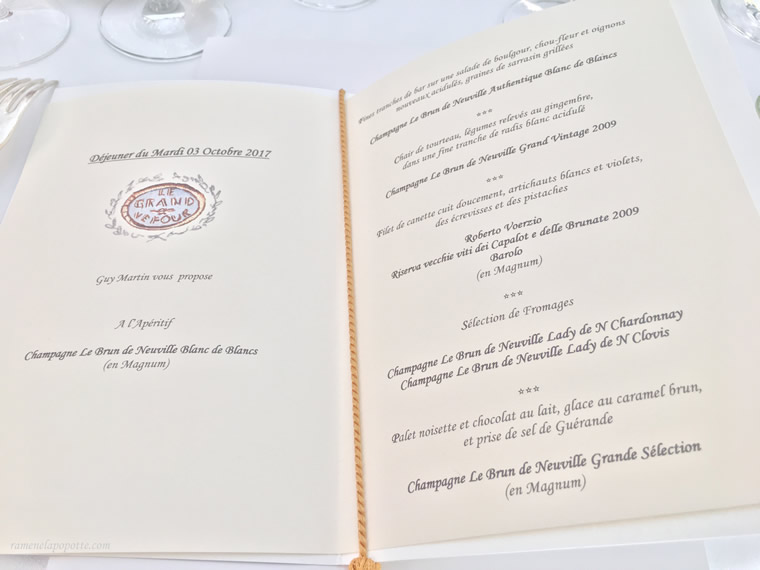 Déjeuner du Mardi 03 Octobre 2017
LE
GRAND
VEFOUR
Guy Martin vous propose
A l'Apéritif
Champagne Le Brun de Neuville Blanc de Blancs
(en Magnum)
ramenelapopotte.com
Fines tranches de bar sur une salade de boulgour, chou-fleur et oignons
nouveaux acidulés, graines de sarrasin grillées
Champagne Le Brun de Neuville Authentique Blanc de Blancs
***
Chair de tourteau, légumes relevés au gingembre,
dans une fine tranche de radis blanc acidulé
Champagne Le Brun de Neuville Grand Vintage 2009
***
Filet de canette cuit doucement, artichauts blancs et violets,
des écrevisses et des pistaches
Roberto Voerzio
Riserva vecchie viti dei Capalot e delle Brunate 2009
Barolo
(en Magnum)
***
Sélection de Fromages
Champagne Le Brun de Neuville Lady de N Chardonnay
Champagne Le Brun de Neuville Lady de N Clovis
***
Palet noisette et chocolat au lait, glace au caramel brun,
et prise de sel de Guérande
Champagne Le Brun de Neuville Grande Sélection
(en Magnum)